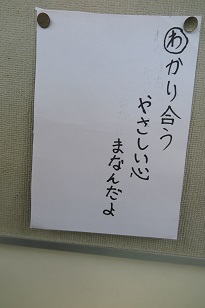 わかり合う
やさしい心
まなんだよ